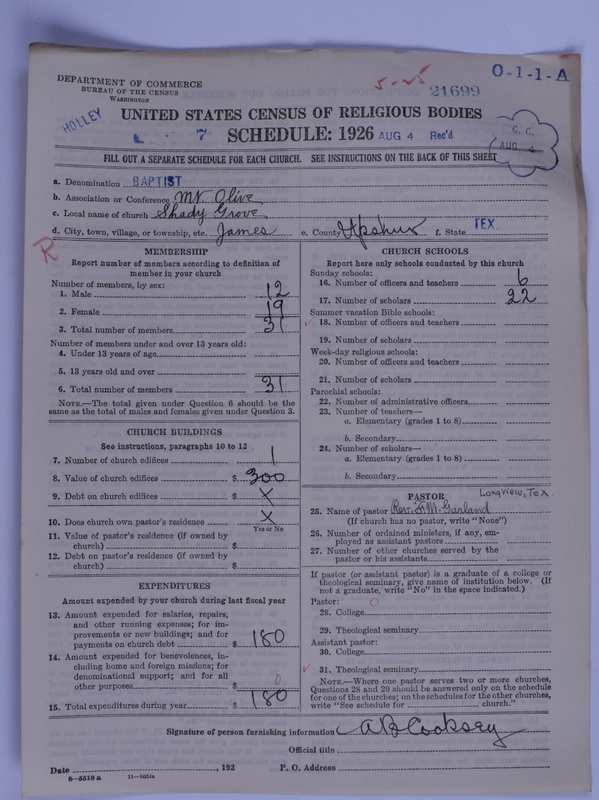 DEPARTMENT OF COMMERCE
BUREAU OF THE CENSUS
WASHINGTON
5-25
21699
0-1-1-A
HOLLEY
UNITED STATES CENSUS OF RELIGIOUS BODIES
7
SCHEDULE: 1926 AUG 4 Rec'd
C. C.
AUG 4
FILL OUT A SEPARATE SCHEDULE FOR EACH CHURCH. SEE INSTRUCTIONS ON THE BACK OF THIS SHEET
a. Denomination BAPTIST
b. Association or Conference Mt. Olive
c. Local name of church Shady Grove
d. City, town, village, or township, etc. James e. County Upshur f. State TEX
R
MEMBERSHIP
Report number of members according to definition of
member in your church
Number of members, by sex:
1. Male 12
2. Female 19
3. Total number of members 31
Number of members under and over 13 years old:
4. Under 13 years of age
5. 13 years old and over
6. Total number of members 31
NOTE.—The total given under Question 6 should be the
same as the total of males and females given under Question 3.
CHURCH BUILDINGS
See instructions, paragraphs 10 to 12
7. Number of church edifices 1
8. Value of church edifices $ 300
9. Debt on church edifices $ X
10. Does church own pastor's residence X
Yes or No
11. Value of pastor's residence (if owned by
church) $
12. Debt on pastor's residence (if owned by
church) $
EXPENDITURES
Amount expended by your church during last fiscal year
13. Amount expended for salaries, repairs,
and other running expenses; for im-
provements or new buildings; and for
payments on church debt $ 180
14. Amount expended for benevolences, in-
cluding home and foreign missions; for
denominational support; and for all
other purposes $ 0
15. Total expenditures during year $ 180
CHURCH SCHOOLS
Report here only schools conducted by this church
Sunday schools:
16. Number of officers and teachers 6
17. Number of scholars 22
Summer vacation Bible schools:
18. Number of officers and teachers
19. Number of scholars
Week-day religious schools:
20. Number of officers and teachers
21. Number of scholars
Parochial schools:
22. Number of administrative officers
23. Number of teachers—
a. Elementary (grades 1 to 8)
b. Secondary
24. Number of scholars—
a. Elementary (grades 1 to 8)
b. Secondary
PASTOR Longview, Tex.
25. Name of pastor Rev. F. M. Garland
(If church has no pastor, write "None")
26. Number of ordained ministers, if any, em-
ployed as assistant pastors
27. Number of other churches served by the
pastor or his assistants
If pastor (or assistant pastor) is a graduate of a college or
theological seminary, give name of institution below. (If
not a graduate, write "No" in the space indicated.)
Pastor: 0
28. College
29. Theological seminary
Assistant pastor:
30. College
31. Theological seminary
NOTE.—Where one pastor serves two or more churches,
Questions 28 and 29 should be answered only on the schedule
for one of the churches; on the schedules for the other churches,
write "See schedule for church."
Signature of person furnishing information A B Cooksey
Official title
Date , 192 P. O. Address
8—5518 a 11—8054a